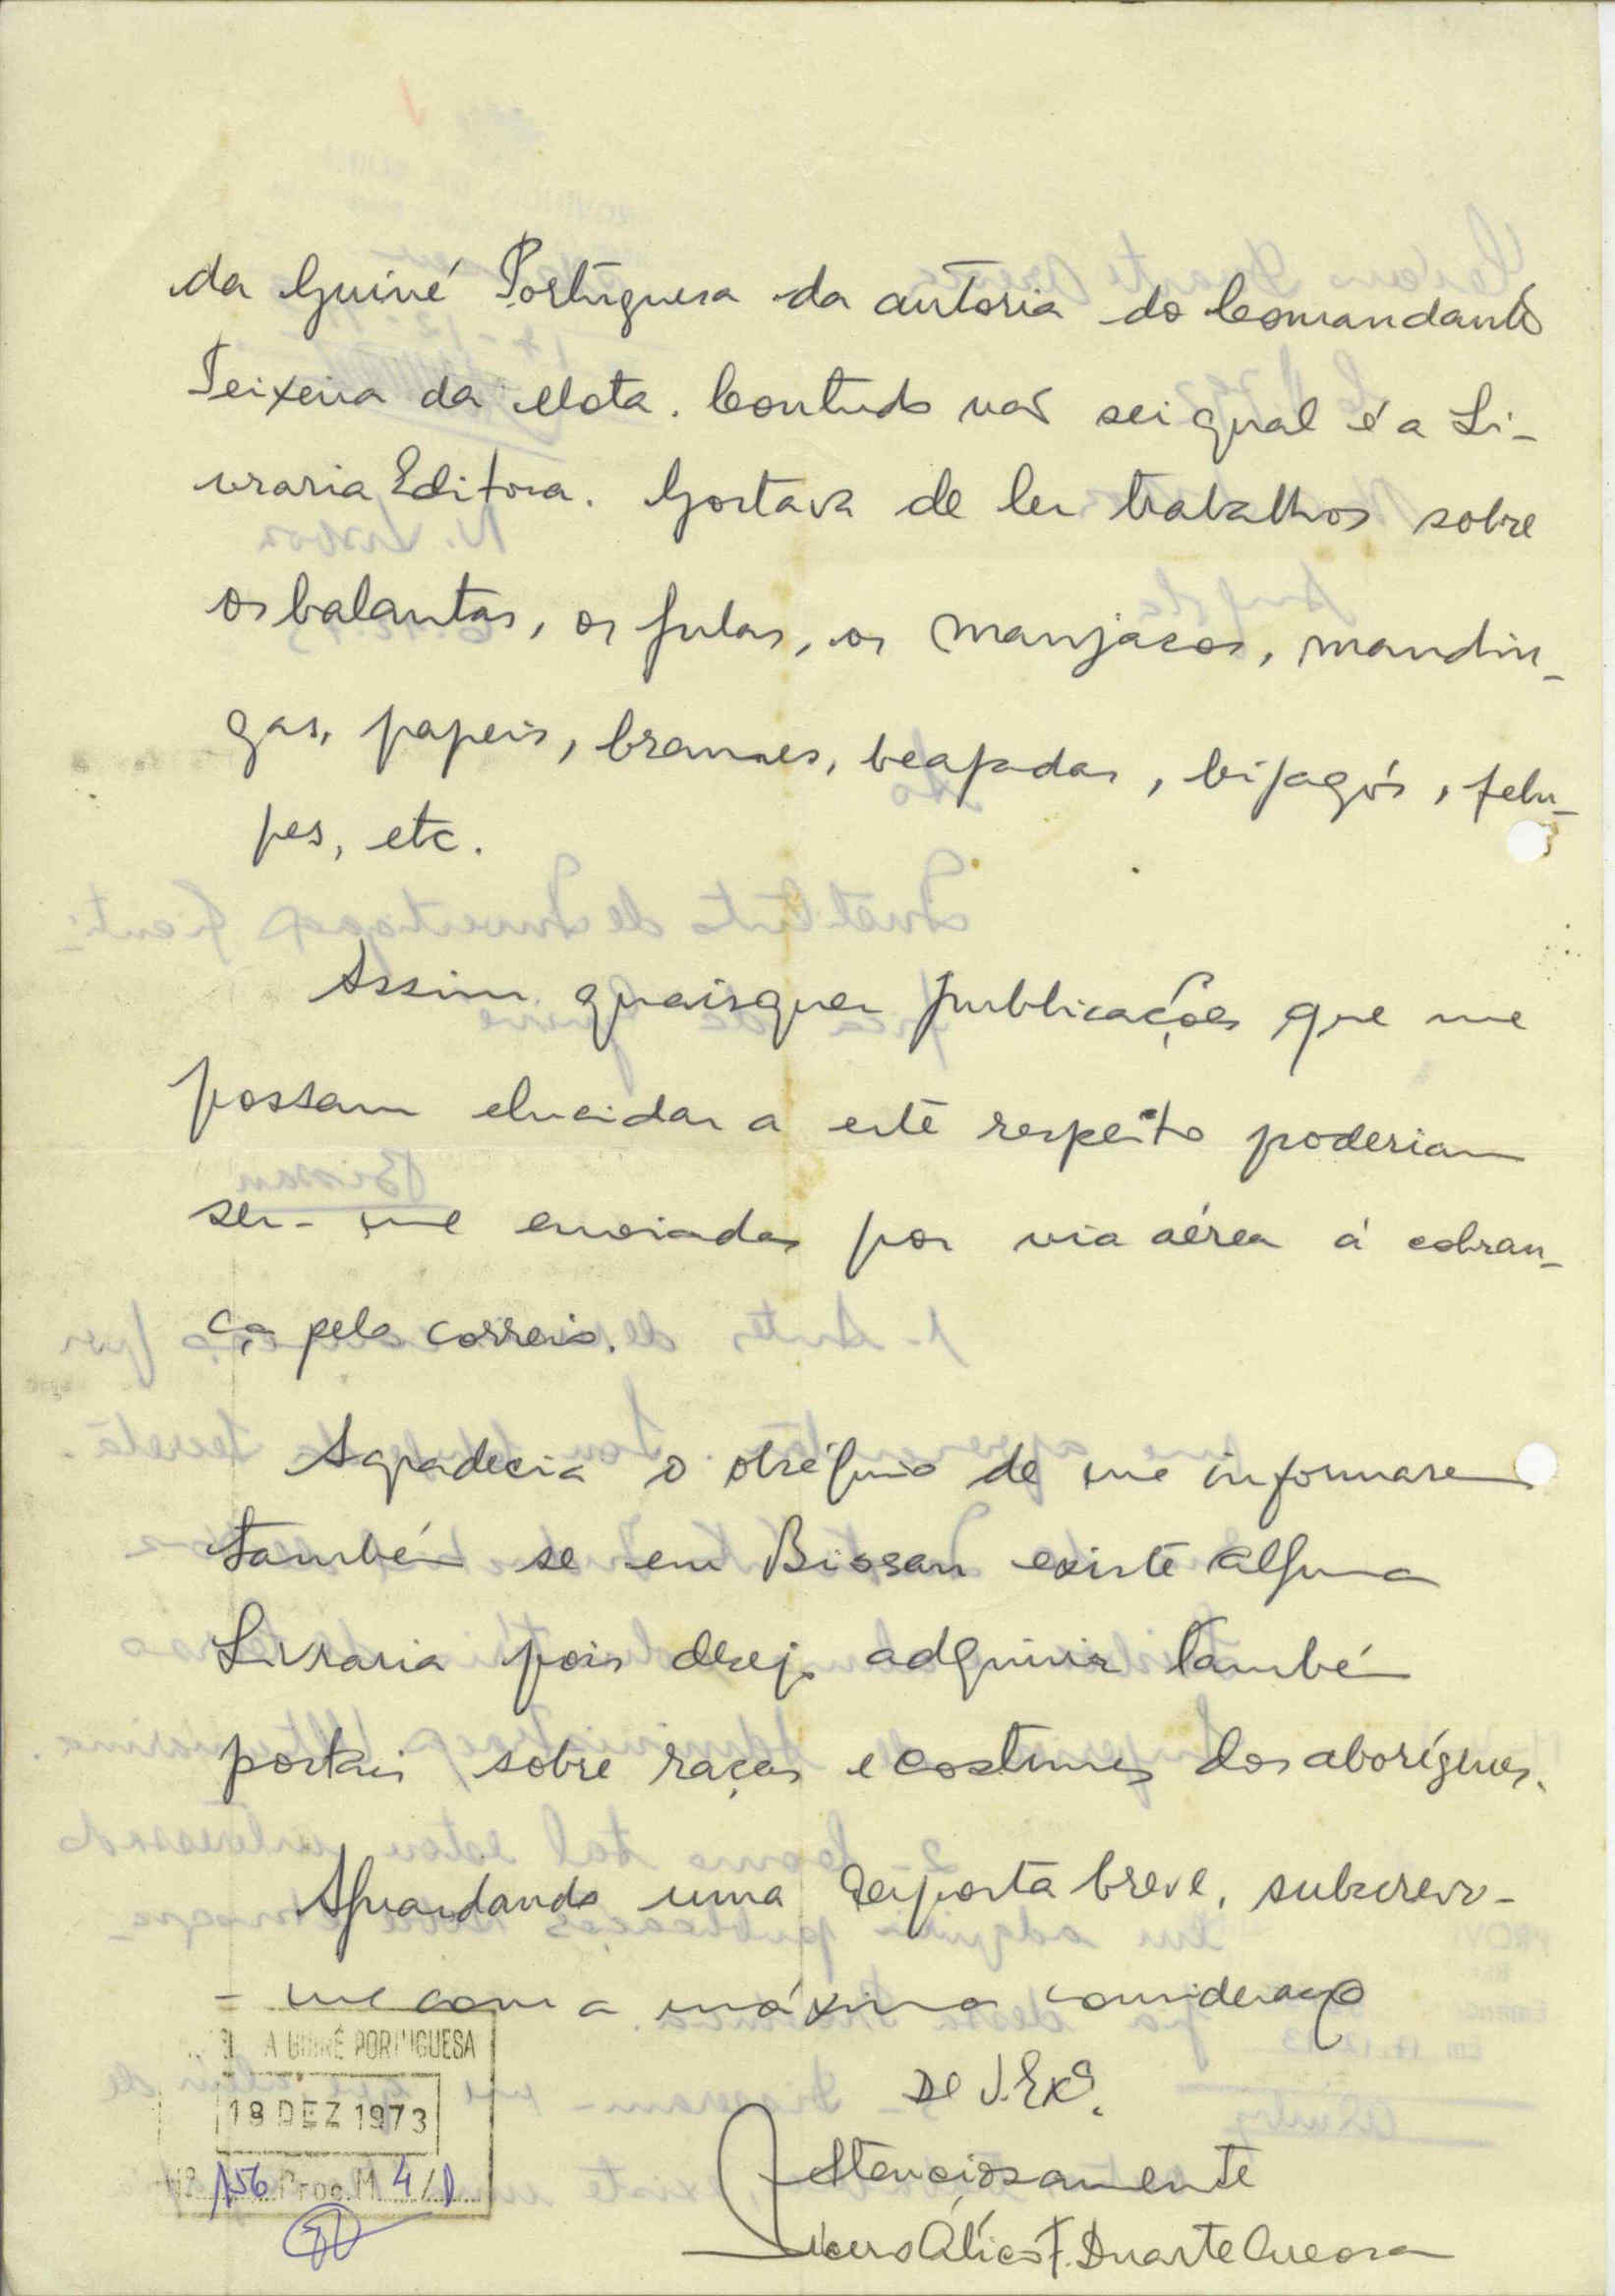 da Guiné Portuguesa da autoria do Comandante
Teixeira da Mota. Contudo não sei qual é a Li-
vraria Editora. Gostava de ler trabalhos sobre
os balantas, os fulas, os manjacos, mandin-
gas, papeis, brames, beafadas, bijagós, felu-
pes, etc.
Assim quaisquer publicações que me
possam elucidar a este respeito poderiam
ser-me enviadas por via aérea á cobran-
ça pelo correio.
Agradecia o obséquio de me informarem
também se em Bissau existe alguma
Livraria pois desejo adquirir também
postais sobre raças e costumes dos aborígenes.
Aguardando uma resposta breve, subscrevo-
-me com a máxima consideração
De V. Exª.
Atenciosamente
Duarte
A GUINÉ PORTUGUESA
18 DEZ 1973
Nº 156 Proc. M 4/D